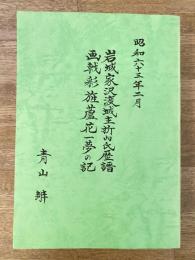 昭和六十三年二月
岩城家沢渡城主折内氏歴譜
画戟彩旌蘆花一夢の記
青山